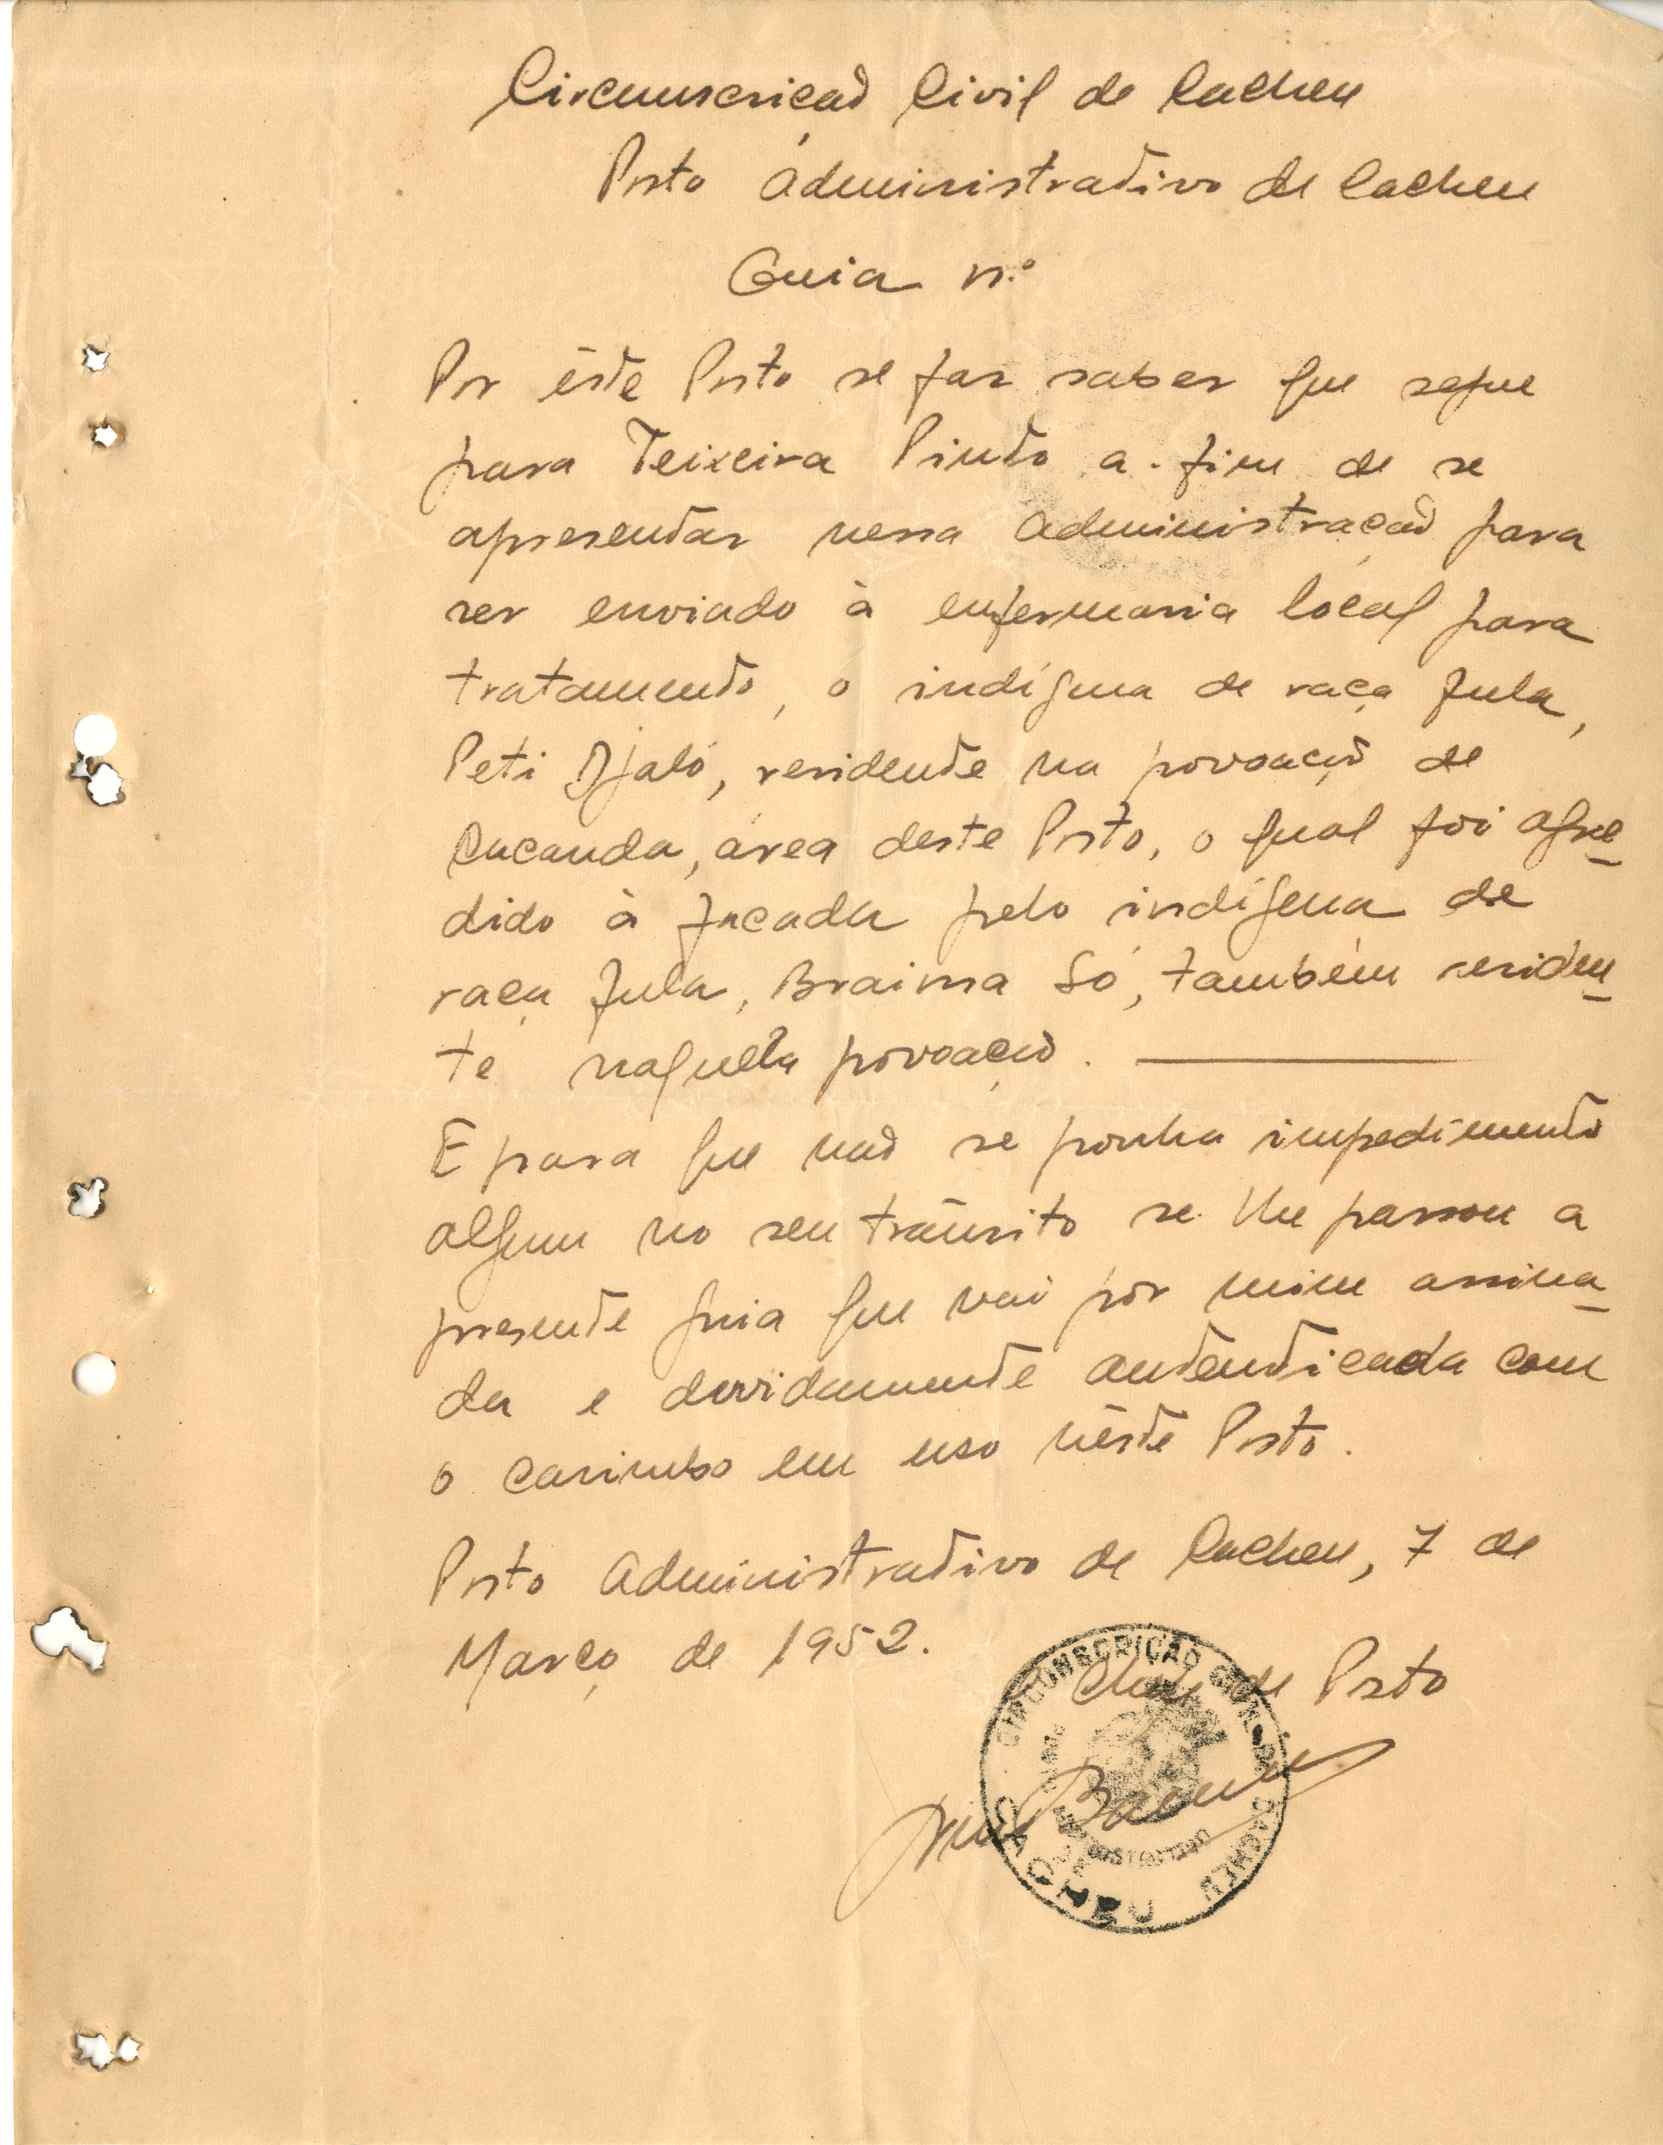 Circunscrição Civil de Cacheu
Posto Administrativo de Cacheu
Guia n.º
Por êste Posto se faz saber que segue
para Teixeira Pinto a-fim de se
apresentar nessa administração para
ser enviado à enfermaria local para
tratamento, o indígena de raça fula,
Peti Djaló, residente na povoação de
Cacanda, área deste Posto, o qual foi agre-
dido à facada pelo indígena de
raça fula, Braima Só, também residen-
te naquela povoação.
E para que não se ponha impedimento
algum no seu trânsito se lhe passou a
presente guia que vai por mim assina-
da e devidamente autenticada com
o carimbo em uso nêste Posto.
Posto Administrativo de Cacheu, 7 de
Março de 1952.
Chefe de Posto
CIRCUNSCRIÇÃO CIVIL DE CACHEU
CACHEU